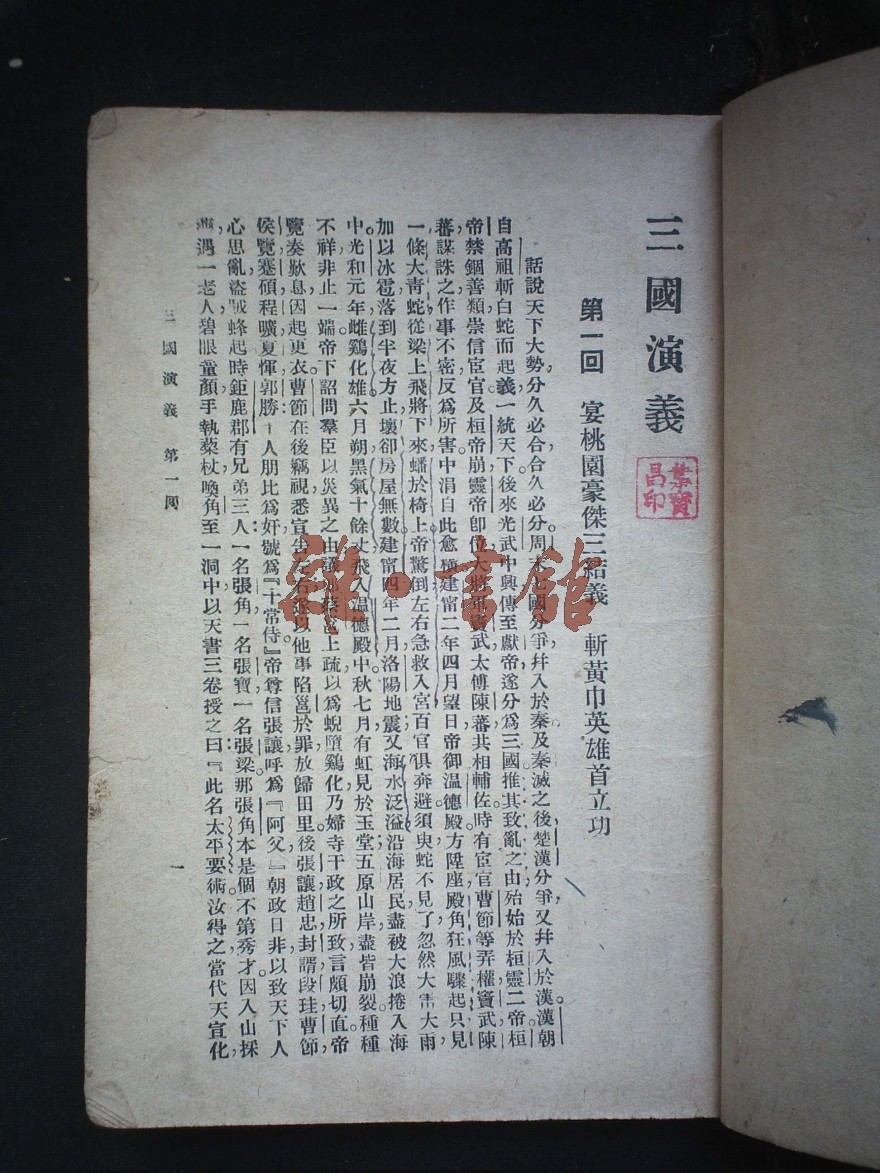 三國演義
葉寶昌印
第一回 宴桃園豪傑三結義 斬黃巾英雄首立功
話說天下大勢，分久必合，合久必分。周末七國分爭，并入於秦；及秦滅之後，楚漢分爭，又并入於漢。漢朝
自高祖斬白蛇而起義，一統天下。後來光武中興，傳至獻帝，遂分為三國。推其致亂之由，殆始於桓靈二帝。桓
帝禁錮善類，崇信宦官。及桓帝崩，靈帝卽位，大將軍竇武，太傅陳蕃，共相輔佐。時有宦官曹節等弄權，竇武陳
蕃謀誅之，作事不密，反為所害。中涓自此愈橫。建甯二年四月望日，帝御溫德殿。方陞座，殿角狂風驟起，只見
一條大青蛇，從梁上飛將下來，蟠於椅上。帝驚倒，左右急救入宮，百官俱奔避。須臾，蛇不見了。忽然大雷大雨，
加以冰雹，落到半夜方止，壞卻房屋無數。建甯四年二月，洛陽地震，又海水泛溢，沿海居民，盡被大浪捲入海
中。光和元年，雌鷄化雄。六月朔，黑氣十餘丈，飛入溫德殿中。秋七月，有虹見於玉堂，五原山岸，盡皆崩裂。種種
不祥，非止一端。帝下詔問羣臣以災異之由，議郎蔡邕上疏，以為蜺墮鷄化，乃婦寺干政之所致，言頗切直。帝
覽奏歎息，因起更衣。曹節在後竊視，悉宣告左右，遂以他事陷邕於罪，放歸田里。後張讓，趙忠，封諝，段珪，曹節，
侯覽，蹇碩，程曠，夏惲，郭勝十人朋比為奸，號為『十常侍』。帝尊信張讓，呼為『阿父』。朝政日非，以致天下人
心思亂，盜賊蜂起。時鉅鹿郡有兄弟三人：一名張角，一名張寶，一名張梁。那張角本是個不第秀才，因入山採
遇一老人，碧眼童顏，手執藜杖，喚角至一洞中，以天書三卷授之曰：『此名太平要術，汝得之，當代天宣化，
三國演義 第一回
一
雜·書館